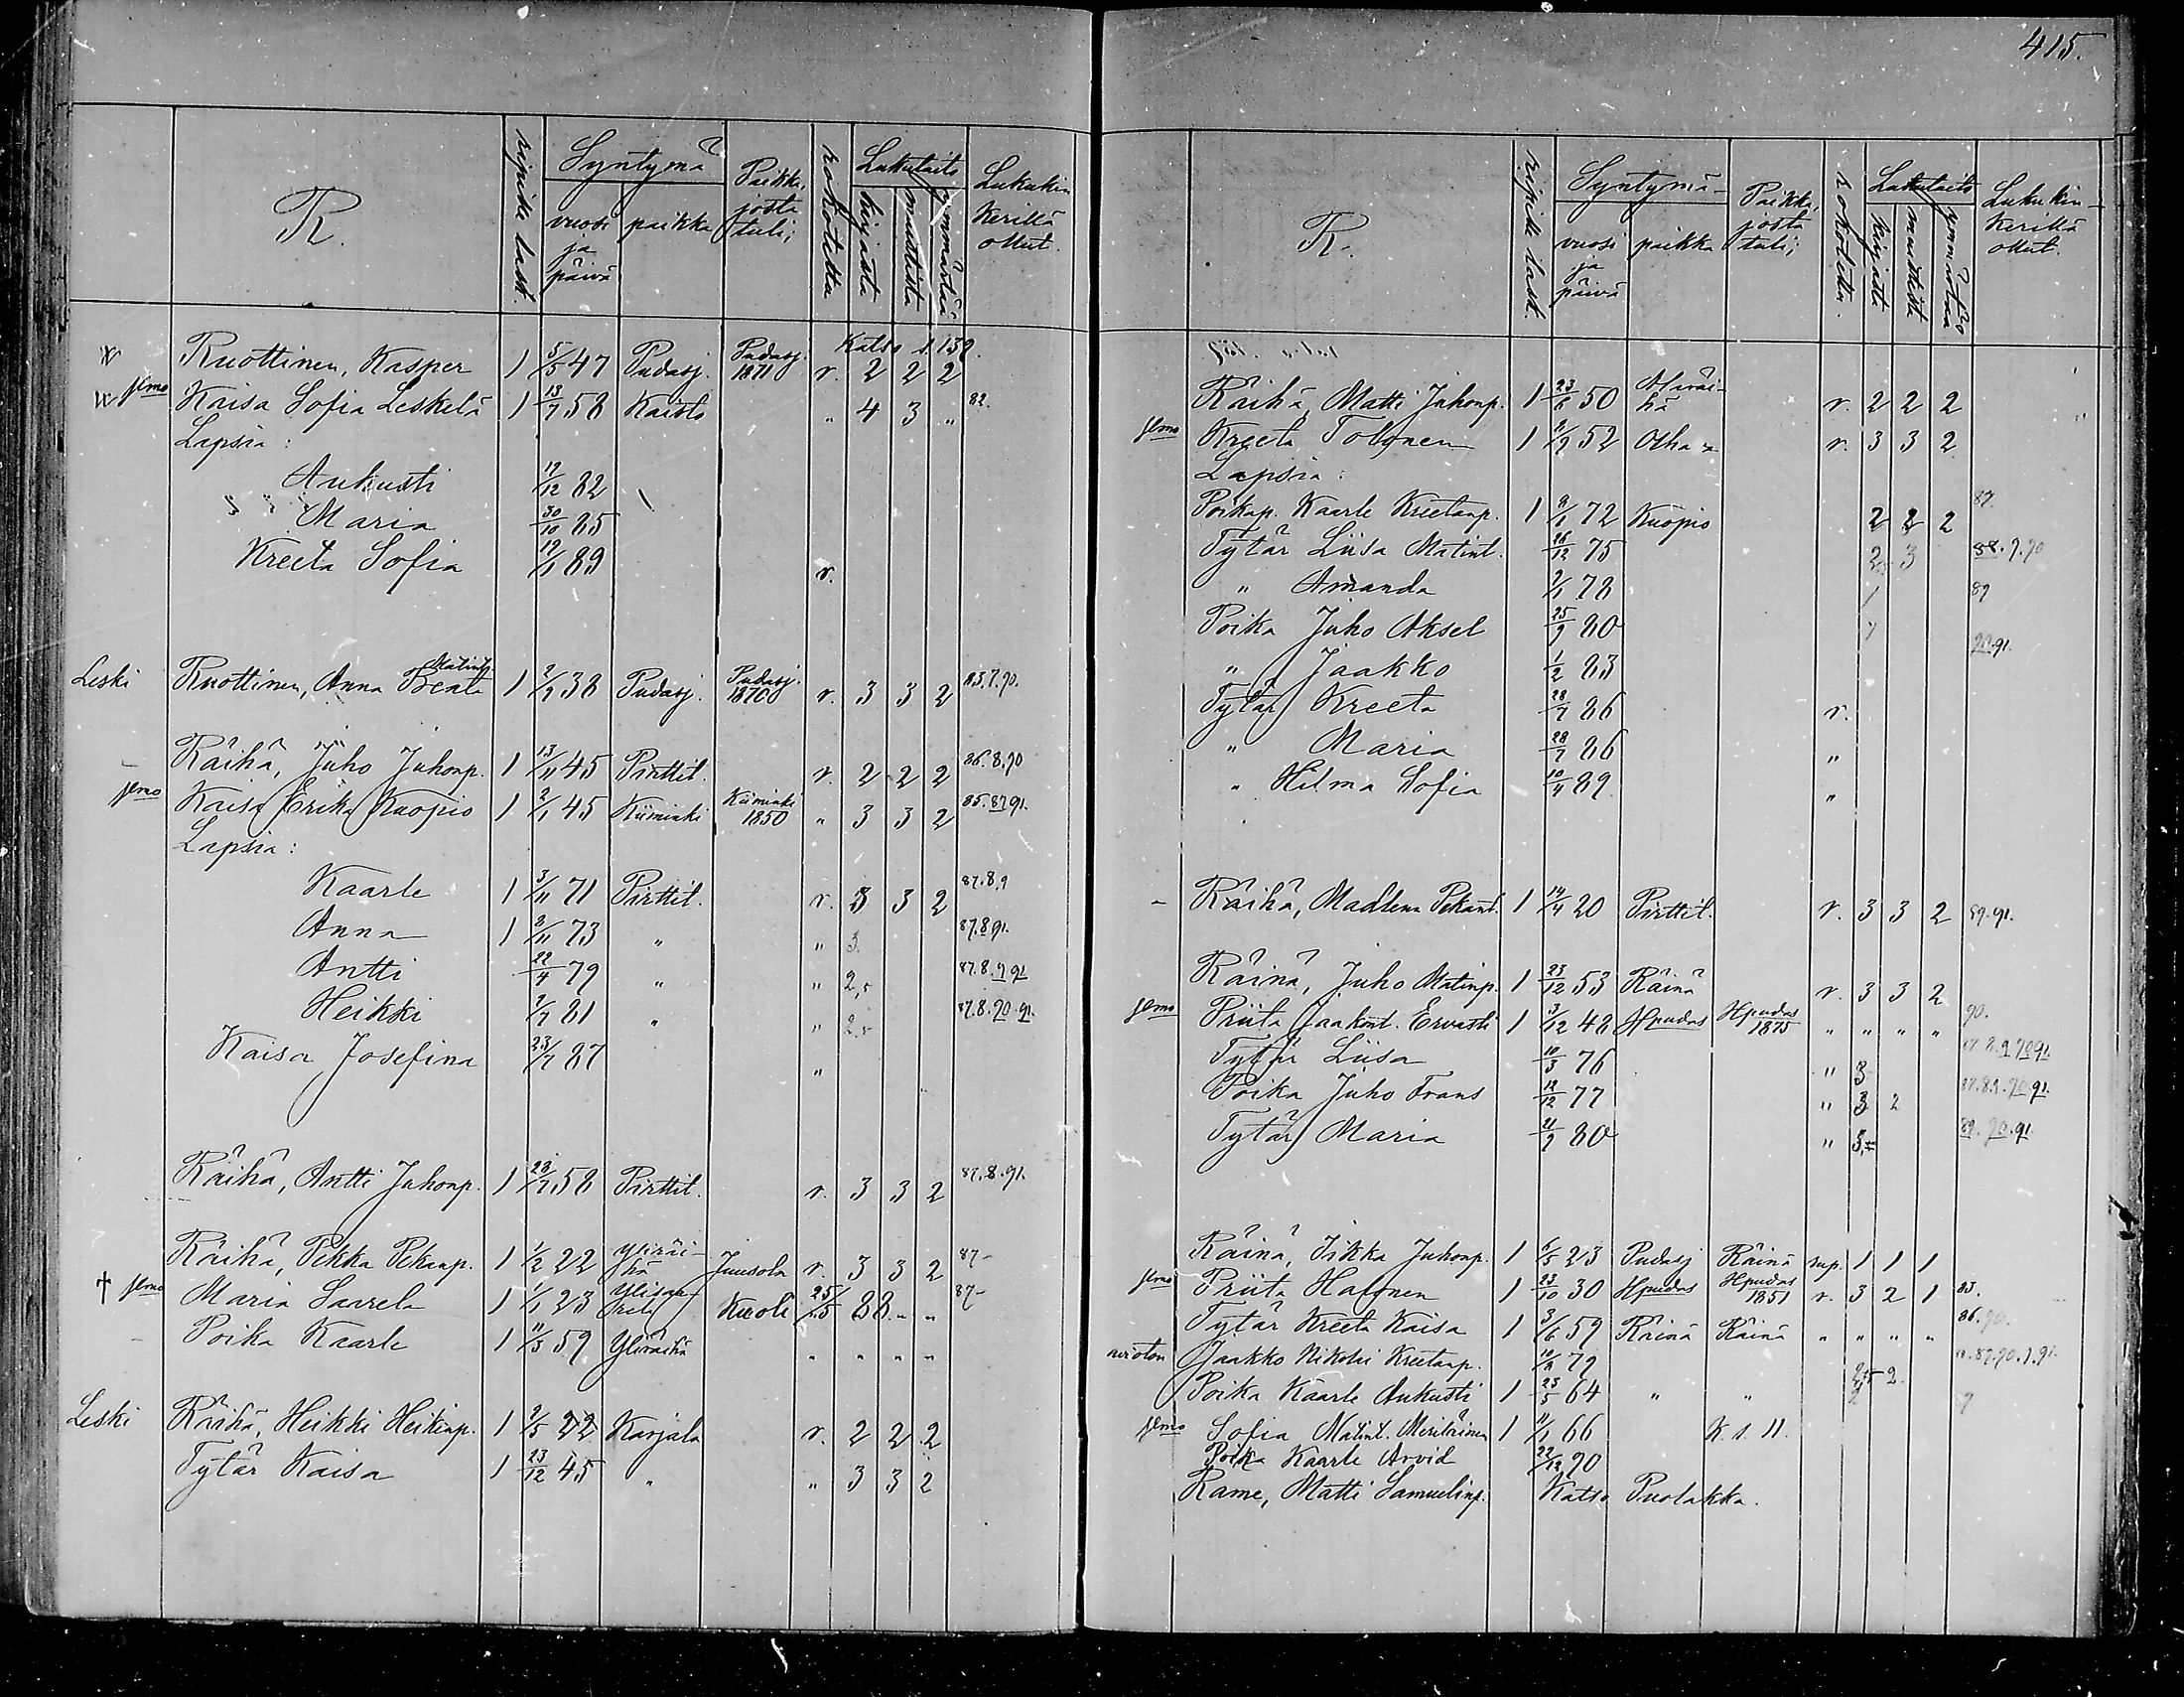 R.
ripille lask.
Syntymä
vuosi ja päivä
paikka
Paikka, josta tuli;
rokotettu
Lukutaito
kirjasta
muistista
ymmärtää
Lukukinkerillä ollut.
Katso s. 132.
Ruottinen, Kasper 1 5/5 47 Pudasj. Pudasj. 1871 r. 2 2 2
jemo Kaisa Sofia Leskelä 1 13/7 58 Kaisto " 4 3 " 82.
Lapsia:
Aukusti 19/12 82
Maria 30/10 85
Kreeta Sofia 19/1 89 r.
Leski Ruottinen, Anna Beata Matint. 38 Pudasj. Pudasj. 1870 r. 3 3 2
Räihä, Juho Juhonp. 1 13/11 45 Pirttil. r. 2 2 2 86.8.90
jemo Kaisa Erika Kuopio 1 2/1 45 Kiiminki Kiiminki 1850 " 3 3 2 85.87 91.
Lapsia:
Kaarle 1 3/11 71 Pirttil. r. 3 3 2 87.8.9
Anna 1 3/11 73 " " 3. 87.8 91.
Antti 22/4 79 " " 2,5 87.8.9 91
Heikki 81 " " 2,5 87.8.90.91.
Kaisa Josefina 23/7 87 "
Räihä, Antti Juhonp. 1 28/7 58 Pirttil. r. 3 3 2 87.8.91.
Räihä, Pekka Pekanp. 1 1/2 22 Yliräihä Juusola r. 3 3 2 87-
† jemo Maria Saarela 1 1/1 23 Kuoli 25/5 88 " " 87-
Poika Kaarle 1 11/3 59 Yliräihä " " " "
Leski Räihä, Heikki Heikinp. 1 22 Karjala r. 2 2 2
Tytär Kaisa 1 23/12 45 " " 3 3 2
415.
R.
ripille lask.
Syntymä-
vuosi ja päivä
paikka
Paikka, josta tuli;
rokotettu.
Lukutaito
kirjasta
muistista
ymmärtää
Lukukin-kerillä ollut.
Räihä, Matti Juhonp. 1 50 Alaräihä r. 2 2 2
jemo Kreeta Tolonen 1 52 r. 3 3 2
Lapsia:
Poikap. Kaarle Kreetanp. 1 72 Kuopio 2 2 2 87.
Tytär Liisa Matint. 26/12 75 2 3
" Amanda 78 1 89
Poika Juho Aksel 25/9 80
" Jaakko 1/2 83
Tytär Kreeta 28/7 86 r.
" Maria 28/7 86 "
" Hilma Sofia 10/4 89 "
Räihä, Madlena Pekant. 1 14/4 20 Pirttil. r. 3 3 2 89.91.
Räinä, Juho Matinp. 1 23/12 53 Räinä r. 3 3 2
jemo Priita Jaakont. Ervasti 1 3/12 48 Hpudas Hpudas 1875 " " " " 90.
Tytär Liisa 10/3 76 " 3
Poika Juho Frans 12/12 77 " 3 2 87.8.9.90.91.
Tytär Maria 21/9 80 " 89.90.91
Räinä, Iikka Juhonp. 1 6/5 23 Pudasj Räinä rup. 1 1 1
jemo Priita Halonen 1 23/10 30 Hpudas Hpudas 1851 r. 3 2 1 83.
Tytär Kreeta Kaisa 1 3/6 59 Räinä Räinä " " " " 86.90.
avioton Jaakko Nikolai Kreetanp. 79 2,5 2.
Poika Kaarle Aukusti 1 23/5 64 " " 2
jemo Sofia Matint. Meriläinen 1 11/1 66 K. s. 11.
Poika Kaarle Arvid 22/12 90
Rame, Matti Samuelinp. Katso Puolakka.